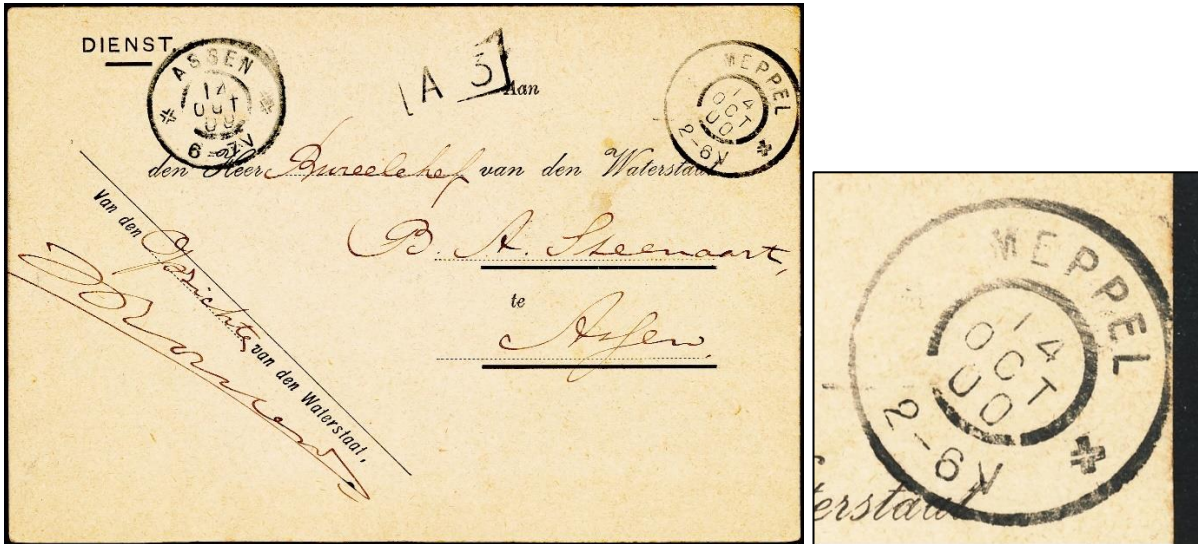 DIENST.
ASSEN
14
OCT
00
6-7V
A 3
Aan
MEPPEL
14
OCT
00
2-6N
den Heer Bureelchef van den Waterstaat
B. A. Steenaart,
te
Assen.
Van den Opzichter van den Waterstaat,
MEPPEL
14
OCT
00
2-6N
erstaat